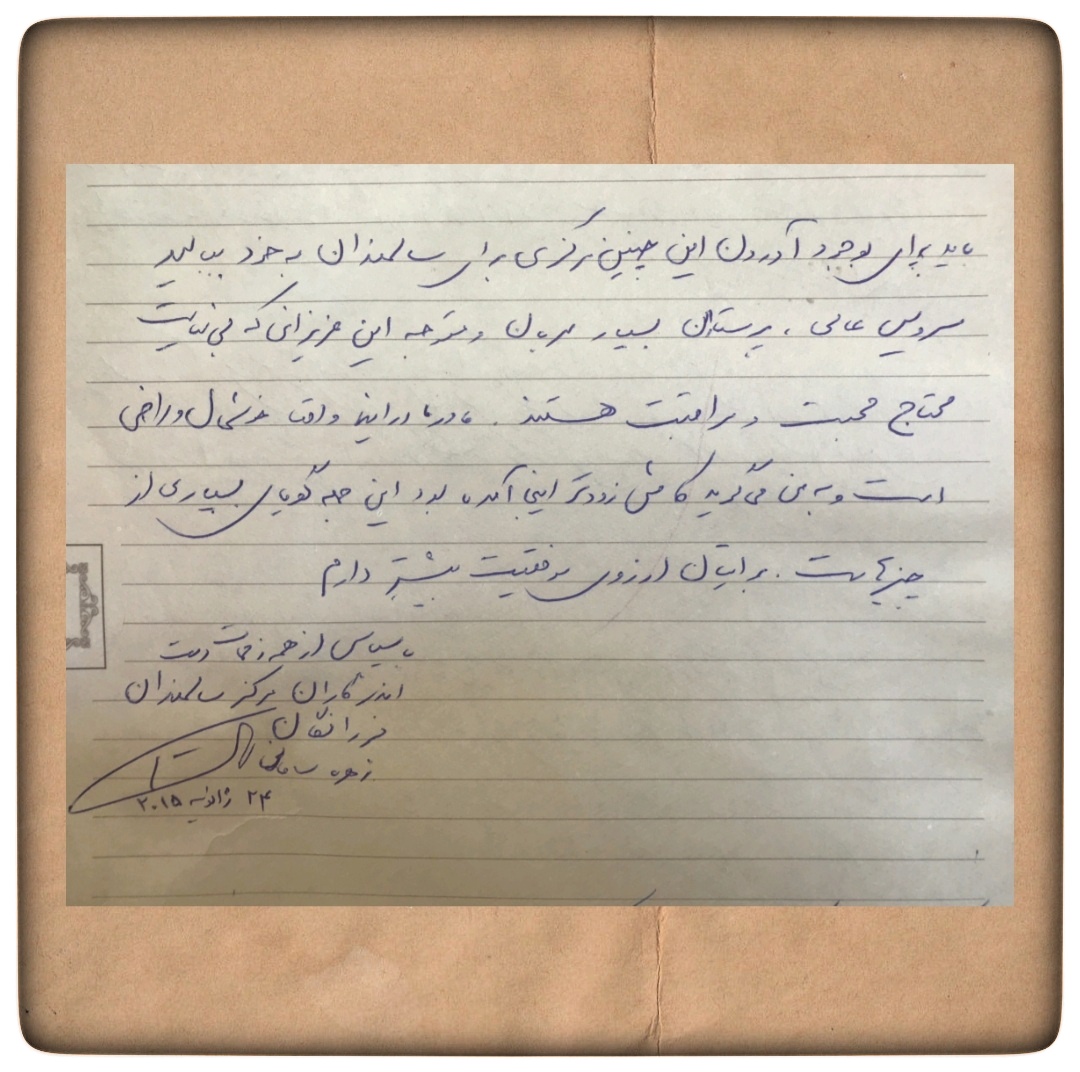 باید برای بوجود آوردن این چنین مرکزی برای سالمندان به خود ببالید
سرویس عالی، پرستاران بسیار مهربان و متوجه این عزیزانی که بی نهایت
محتاج محبت و مراقبت هستند. مادر ما در اینجا واقعا خوشحال و راضی
است و به من می‌گوید کاش زودتر اینجا آمده بود این جمله گویای بسیاری از
چیزهاست. برایتان آرزوی موفقیت بیشتر دارم
با سپاس از همه زحمات دست
اندرکاران مرکز سالمندان
فرزانگان
زهره
۲۴ ژانویه ۲۰۱۵